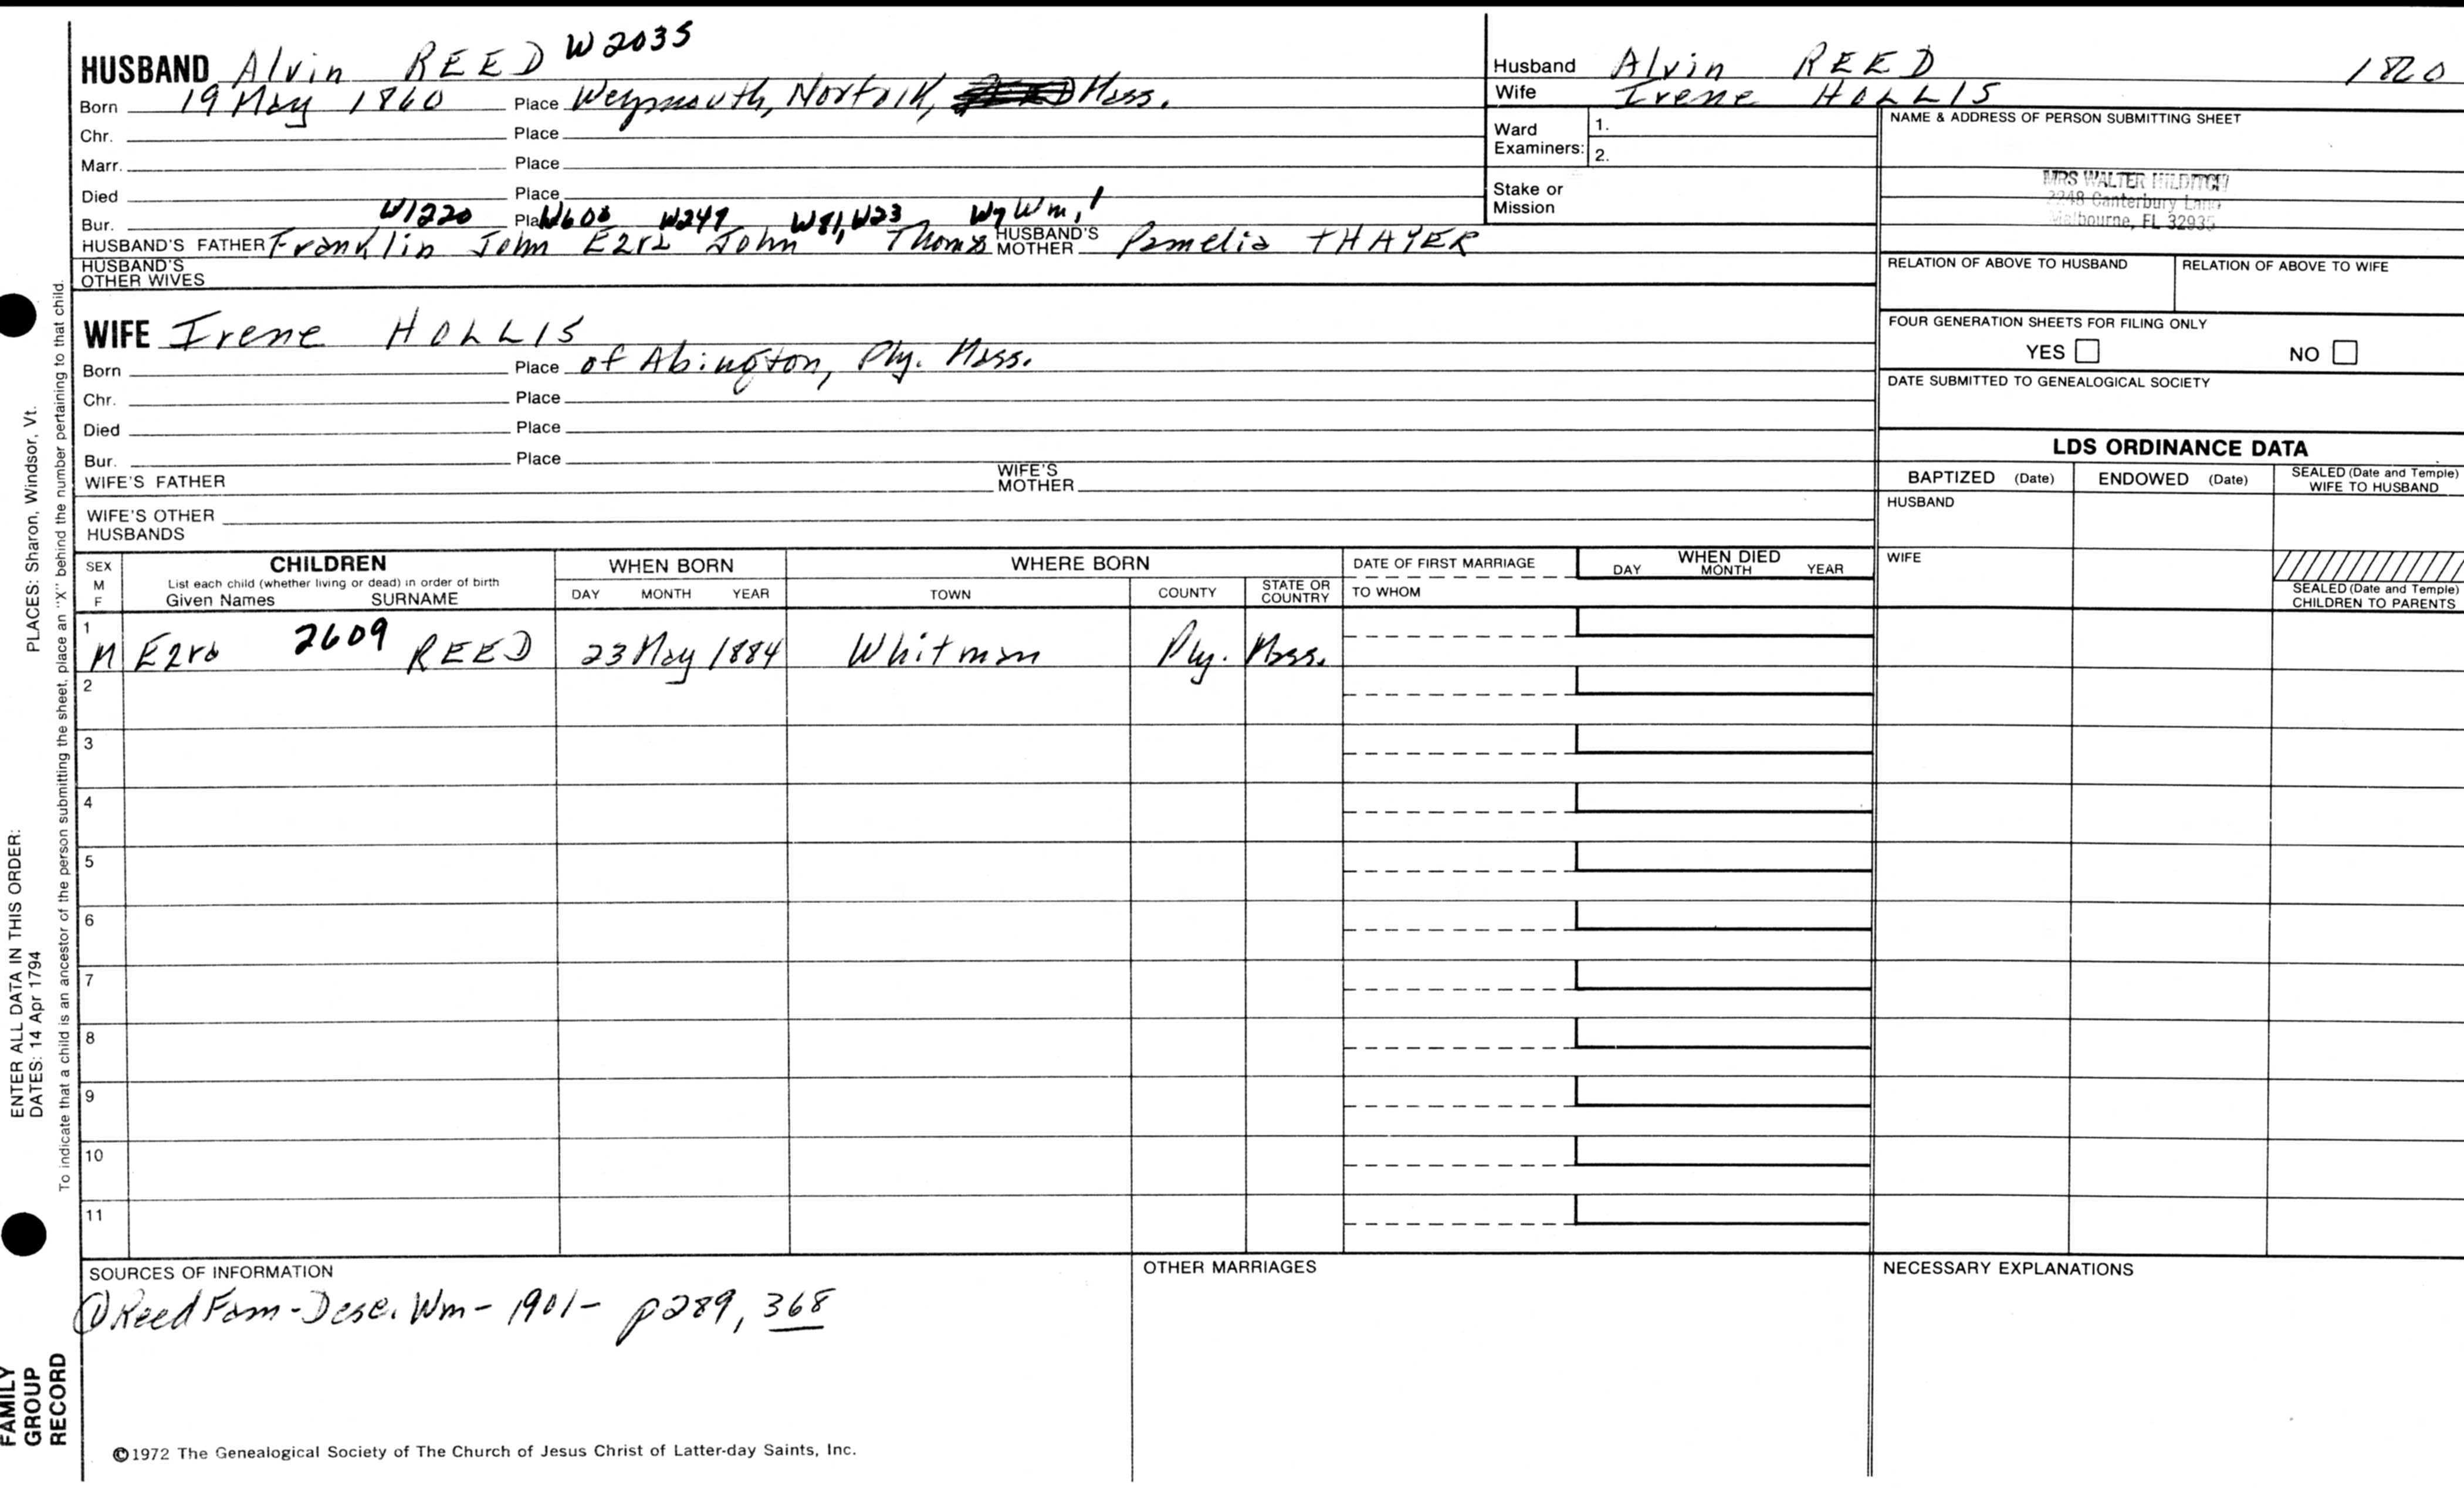 HUSBAND Alvin REED W2035
Born 19 May 1860 Place Weymouth, Norfolk, Mass.
Chr. Place
Marr. Place
Died Place
Bur. Place
W1220 W608 W247 W81, W23 W7 Wm, 1
HUSBAND'S FATHER Franklin John Ezra John Thomas HUSBAND'S MOTHER Pamelia THAYER
HUSBAND'S OTHER WIVES
WIFE Irene HOLLIS
Born Place of Abington, Ply. Mass.
Chr. Place
Died Place
Bur. Place
WIFE'S FATHER WIFE'S MOTHER
WIFE'S OTHER HUSBANDS
Husband Alvin REED
Wife Irene HOLLIS
Ward Examiners: 1.
2.
Stake or Mission
NAME & ADDRESS OF PERSON SUBMITTING SHEET
MRS WALTER HILDITCH
2248 Canterbury Lane
Melbourne, FL 32935
RELATION OF ABOVE TO HUSBAND RELATION OF ABOVE TO WIFE
FOUR GENERATION SHEETS FOR FILING ONLY
YES NO
DATE SUBMITTED TO GENEALOGICAL SOCIETY
LDS ORDINANCE DATA
BAPTIZED (Date) ENDOWED (Date) SEALED (Date and Temple) WIFE TO HUSBAND
HUSBAND
WIFE
SEALED (Date and Temple) CHILDREN TO PARENTS
SEX M F
CHILDREN
List each child (whether living or dead) in order of birth
Given Names SURNAME
WHEN BORN
DAY MONTH YEAR
WHERE BORN
TOWN COUNTY STATE OR COUNTRY
DATE OF FIRST MARRIAGE
TO WHOM
WHEN DIED
DAY MONTH YEAR
1 M Ezra 2609 REED 23 May 1884 Whitman Ply. Mass.
2
3
4
5
6
7
8
9
10
11
SOURCES OF INFORMATION
① Reed Fam - Desc. Wm - 1901 - p289, 368
OTHER MARRIAGES
NECESSARY EXPLANATIONS
©1972 The Genealogical Society of The Church of Jesus Christ of Latter-day Saints, Inc.
FAMILY GROUP RECORD
ENTER ALL DATA IN THIS ORDER:
DATES: 14 Apr 1794
PLACES: Sharon, Windsor, Vt.
To indicate that a child is an ancestor of the person submitting the sheet, place an "X" behind the number pertaining to that child.